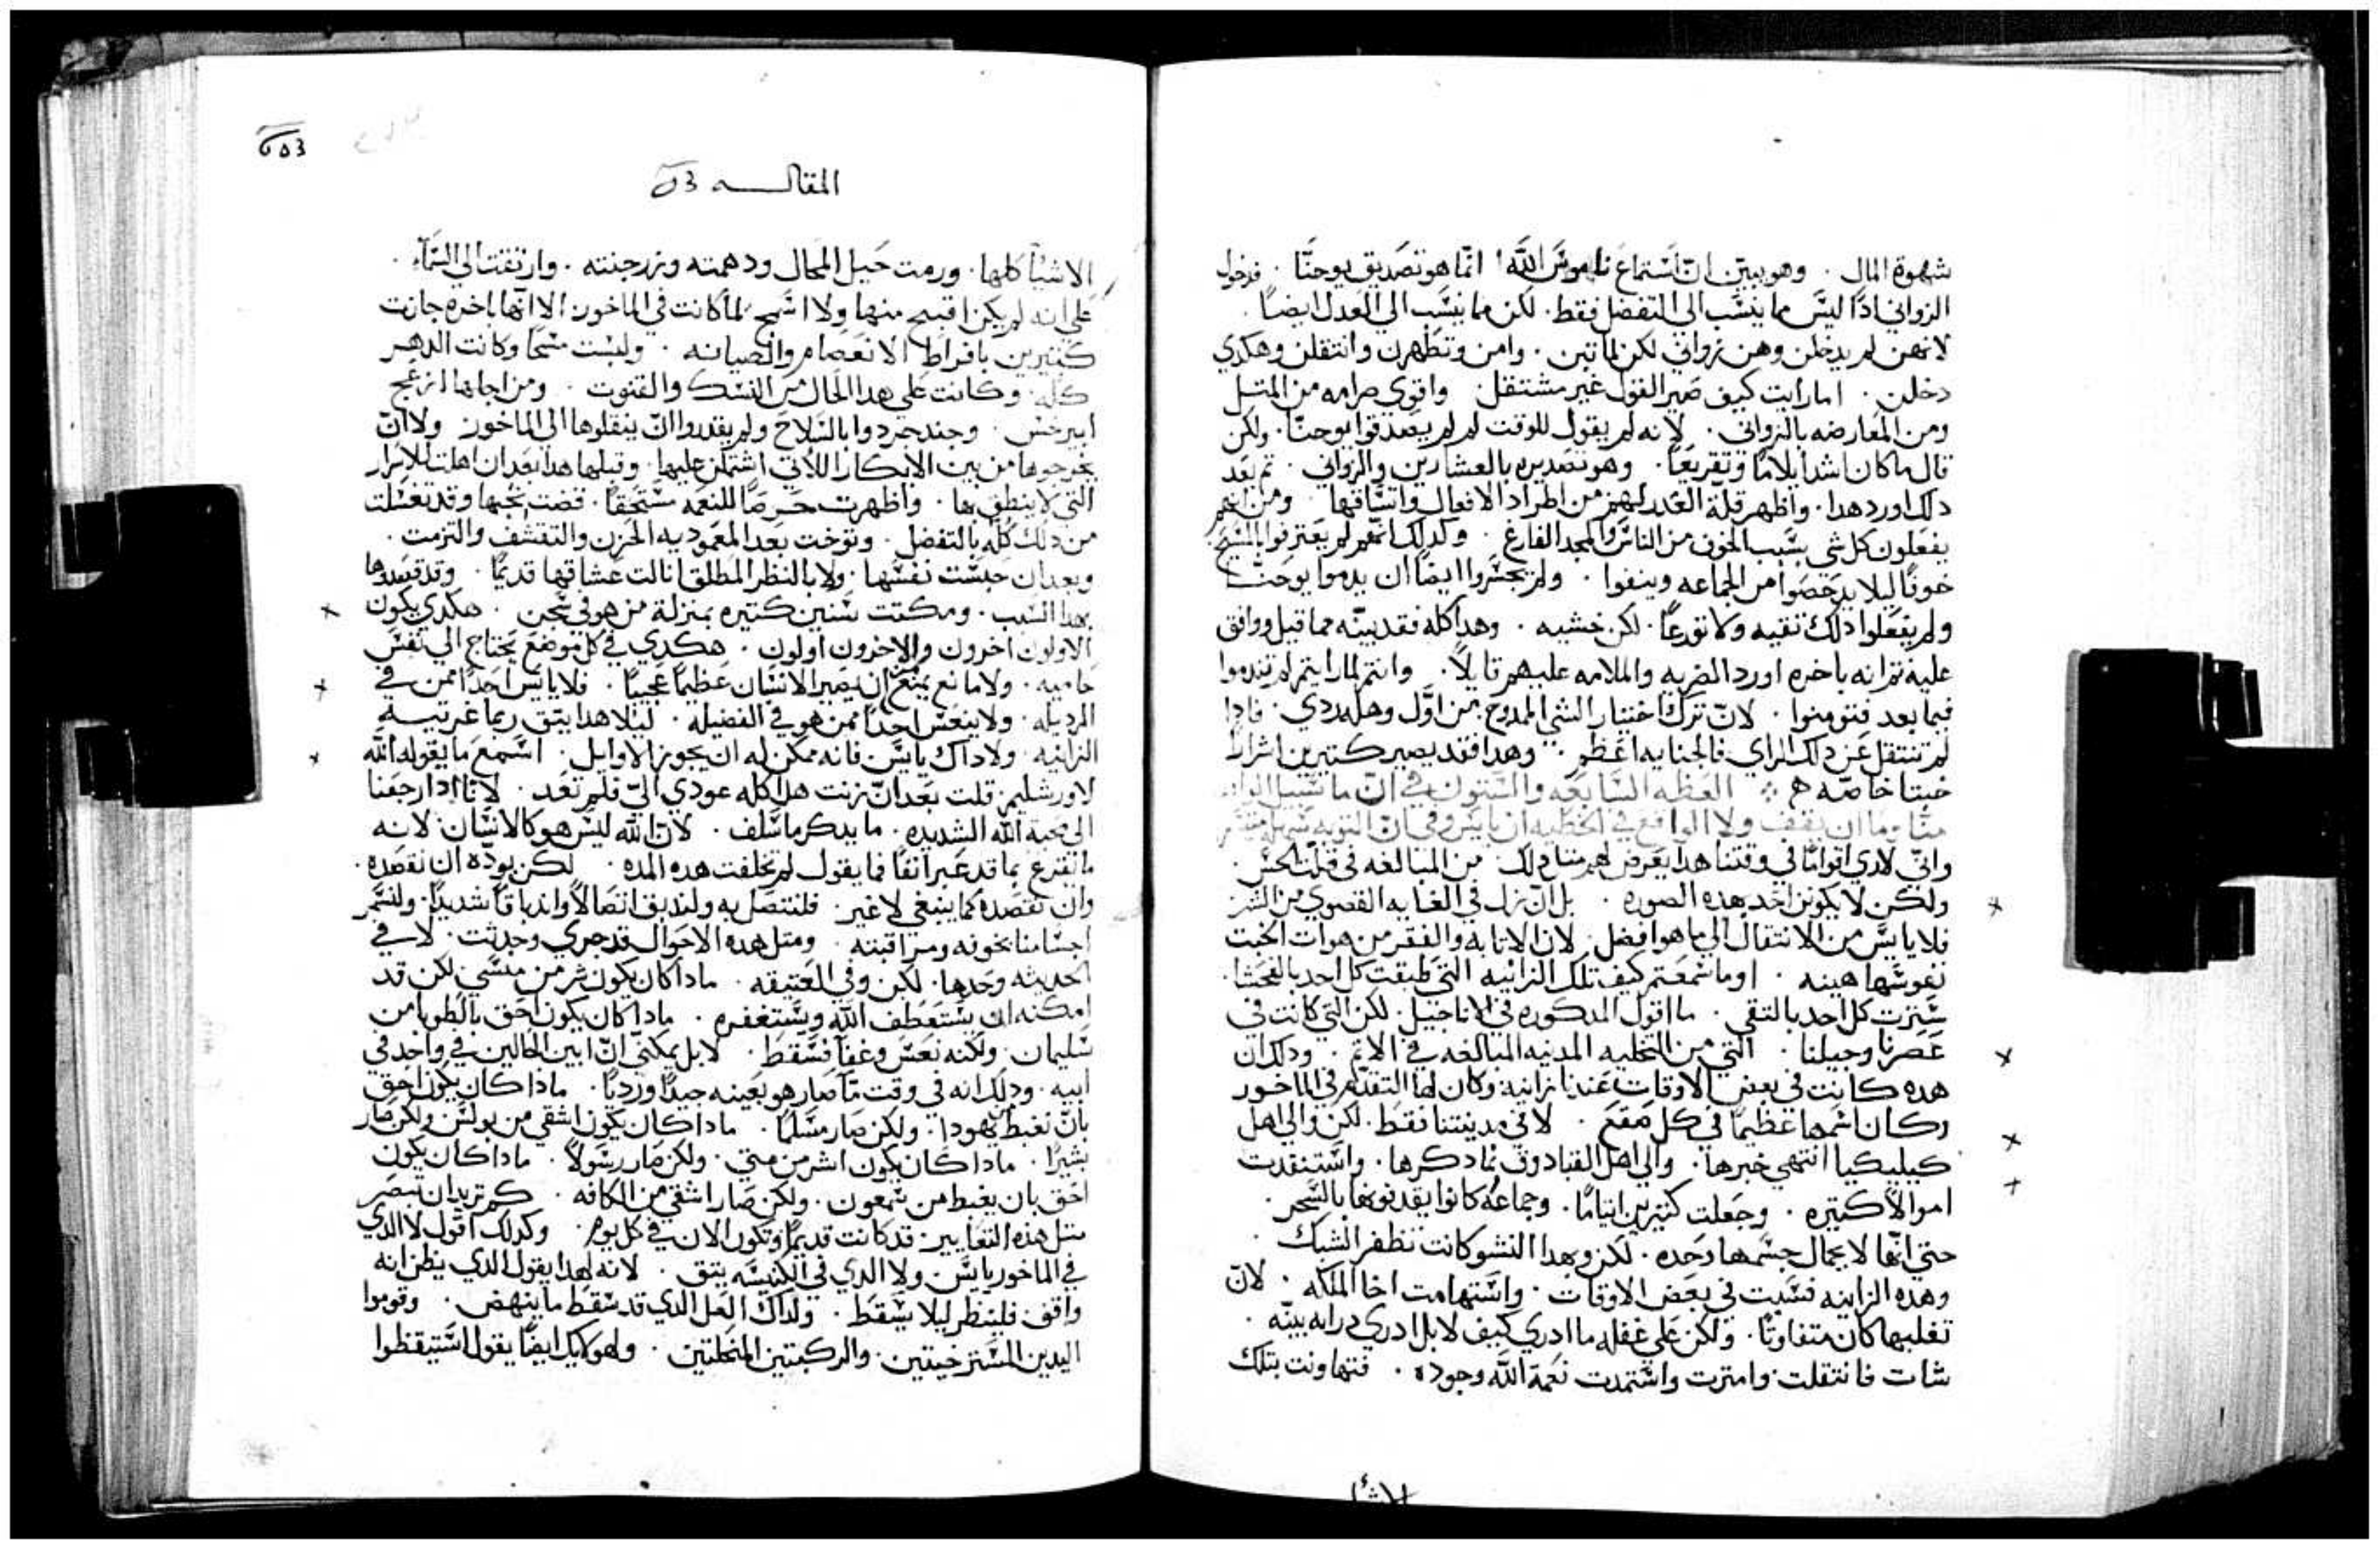 شهوة المال . وهو يبين ان استماع ناموس الله انما هو تصديق يوحنا . فدخول
الزواني اذًا ليس مما ينسب الى التفضل فقط . لكن مما ينسب الى العدل ايضًا .
لانهن لم يدخلن وهن زواني لكن لما تبن . وامن وتطهرن وانتقلن وهكدي
دخلن . اما رايت كيف صير القول غير مشتقل واقوي صرامه من المتل
ومن المعارضه بالزواني . لانه لم يقول للوقت لم لم يصدقوا يوحنا . ولكن
قال ما كان اشد ايلامًا وتقريعًا . وهو تصديره بالعشارين والزواني . تم بعد
دلك اورد هدا . واظهر قلة العدد لهم من اطراد الافعال واتساقها
يفعلون كل شي بسبب الخوف من الناس والمجد الفارغ . وكدلك انهم لم يعترفوا بالمسيح
خوفًا ليلا يدحضوا من الجماعه وينفوا . ولم يجسروا ايضًا ان يدموا يوحنا
ولم يفعلوا دلك تقيه ولا تورعًا . لكن خشيه . وهدا كله فقد بينه مما قيل ووافق
عليه تم انه باخره اورد الضربه والملامه عليهم قايلًا . وانتم لما رايتم لم تندموا
فيما بعد فتومنوا . لان ترك اختيار الشي الممدوح من اول وهله ردي . فادا
لم تنتقل عن دلك الراي فالجنايه اعظم . وهدا فقد يصير كتيرين اشرارًا
خبتا خاصه ⁘ العظه السابعه والستون في ان ما سبيل
واني لادري اقوامًا في وقتنا هدا يعرض لهم مثل دلك من المبالغه في قلة الحس
ولكن لا يكونن احد بهده الصوره . بل ان نزل في الغايه القصوي من الشر
فلا ياىس من الانتقال الي ما هو افضل . لان الانابه والفقر من هوات الخبت
نفوسها هينه . اوما سمعتم كيف تلك الزانيه التي طبقت كل احد بالفحشا .
سترت كل احد بالتقي . ما اقول المدكوره في الاناجيل . لكن التي كانت في
عصرنا وجيلنا . التي من المدنيه المبالغه في الاتم . ودلك ان
هده كانت في بعض الاوقات عندنا زانيه وكان لها التقدم في الماخور
وكان اسمها عظيمًا في كل صقع . لا في مدينتنا فقط . لكن والي اهل
كيليكيا انتهي خبرها . والي اهل القبادوق نما دكرها . واستنفدت
اموالًا كتيره . وجعلت كتيرين ايتامًا . وجماعه كانوا يقدفونها بالسحر .
حتي انها لا بجمال جسمها وحده . لكن وبهدا النشو كانت تظفر الشبك .
وهده الزانيه فسبت في بعض الاوقات . واستهامت اخا الملكه . لان
تغلبها كان متفاوتًا . ولكن علي غفله ما ادري كيف لا بل ادري درايه بينه .
شات فانتقلت وامترت واستمدت نعمة الله وجوده . فتهاونت بتلك
الاشيا
المقالـــه
الاشيا كلها . ورمت حيل المحال ودهمته ونزرجنته . وارتقت الي السماء .
علي انه لم يكن اقبح منها ولا اسمج لما كانت في الماخور الا انها باخره جازت
كتيرين بافراط الانعصام والصيانه . ولبست مسحًا وكانت الدهر
كله . وكانت علي هدا الحال من النسك والقنوت . ومن اجلها انزعج
ابيرخس . وجند جردوا بالسلاح ولم يقدروا ان ينقلوها الي الماخور ولا ان
يخرجوها من بين الابكار اللاتي اشتملن عليها . وقبلها هدا بعد ان اهلت للاسرار
التي لا ينطق بها . واظهرت حرصًا للنعمه مستحقًا . قضت نحبها وقد تغسلت
من دلك كله بالتفضل . وتوخت بعد المعموديه الحزن والتقشف والتزمت .
وبعد ان حبست نفسها . ولا بالنظر المطلق انالت عشاقها قديمًا . وقد قصدوها
بهدا السبب . ومكتت سنين كتيره بمنزلة من هو في سجن . هكدي يكون
الاولون اخرون والاخرون اولون . هكدي في كل موضع يحتاج الي نفس
حاميه . ولا مانع يمنع ان يصير الانسان عظيمًا عجيبًا . فلا ياىس احدًا ممن في
الرديله . ولا ينعس احدًا ممن هو في الفضيله . ليلا هدا يتق ربما غرتبه
الزانيه . ولا داك ياىس فانه ممكن له ان يجوز الاوايل . اسمع ما يقوله الله
لاورشليم قلت بعد ان زنت هدا كله عودي الي فلم تعد . لانا ادا رجعنا
الي محبة الله الشديده . ما يدكر ما سلف . لان الله ليس هو كالانسان لانه
ما يقرع بما قد عبر انفًا فما يقول لم تخلفت هده المده لكن بوده ان نقصده .
وان نقصده كما ينبغي لا غير . فلنتصل به ولنديق اتصالًا شديدًا . ولنسمر
اجسامنا بخوفه ومراقبته . ومتل هده الاحوال قد جري وحدثت . لا في
الحديثه وحدها . لكن وفي العتيقه . مادا كان يكون شر من منسي لكن قد
امكنه ان يستعطف الله ويستغفره . مادا كان يكون احق بالطوبا من
سليمان . ولكنه نعس وغفا فسقط . لا بل يمكني ان ابين الحالين في واحد في
ابيه . ودلك انه في وقت ما صار هو بعينه جيدًا ورديًا . مادا كان يكون احق
بان نغبط يهودا . ولكن صار مسلمًا . مادا كان يكون اشقي من بولس ولكن صار
بشيرًا . مادا كان يكون اشر من متي . ولكن صار رسولًا . مادا كان يكون
احق بان يغبط من سمعون . ولكن صار اشقي من الكافه . كم تريد ان تبصر
مثل هذه التغايير قد كانت قديمًا وتكون الان في كل يوم . وكدلك اقول لا الدي
في الماخور ياىس ولا الدي في الكنيسه يتق . لانه لهدا يقول الدي يظن انه
واقف فلينظر ليلا يسقط . ولداك العل الدي قد سقط ما ينهض . وقوموا
اليدين المسترخيتين . والركبتين المتخليتين . ولهولايك ايضًا يقول استيقظوا